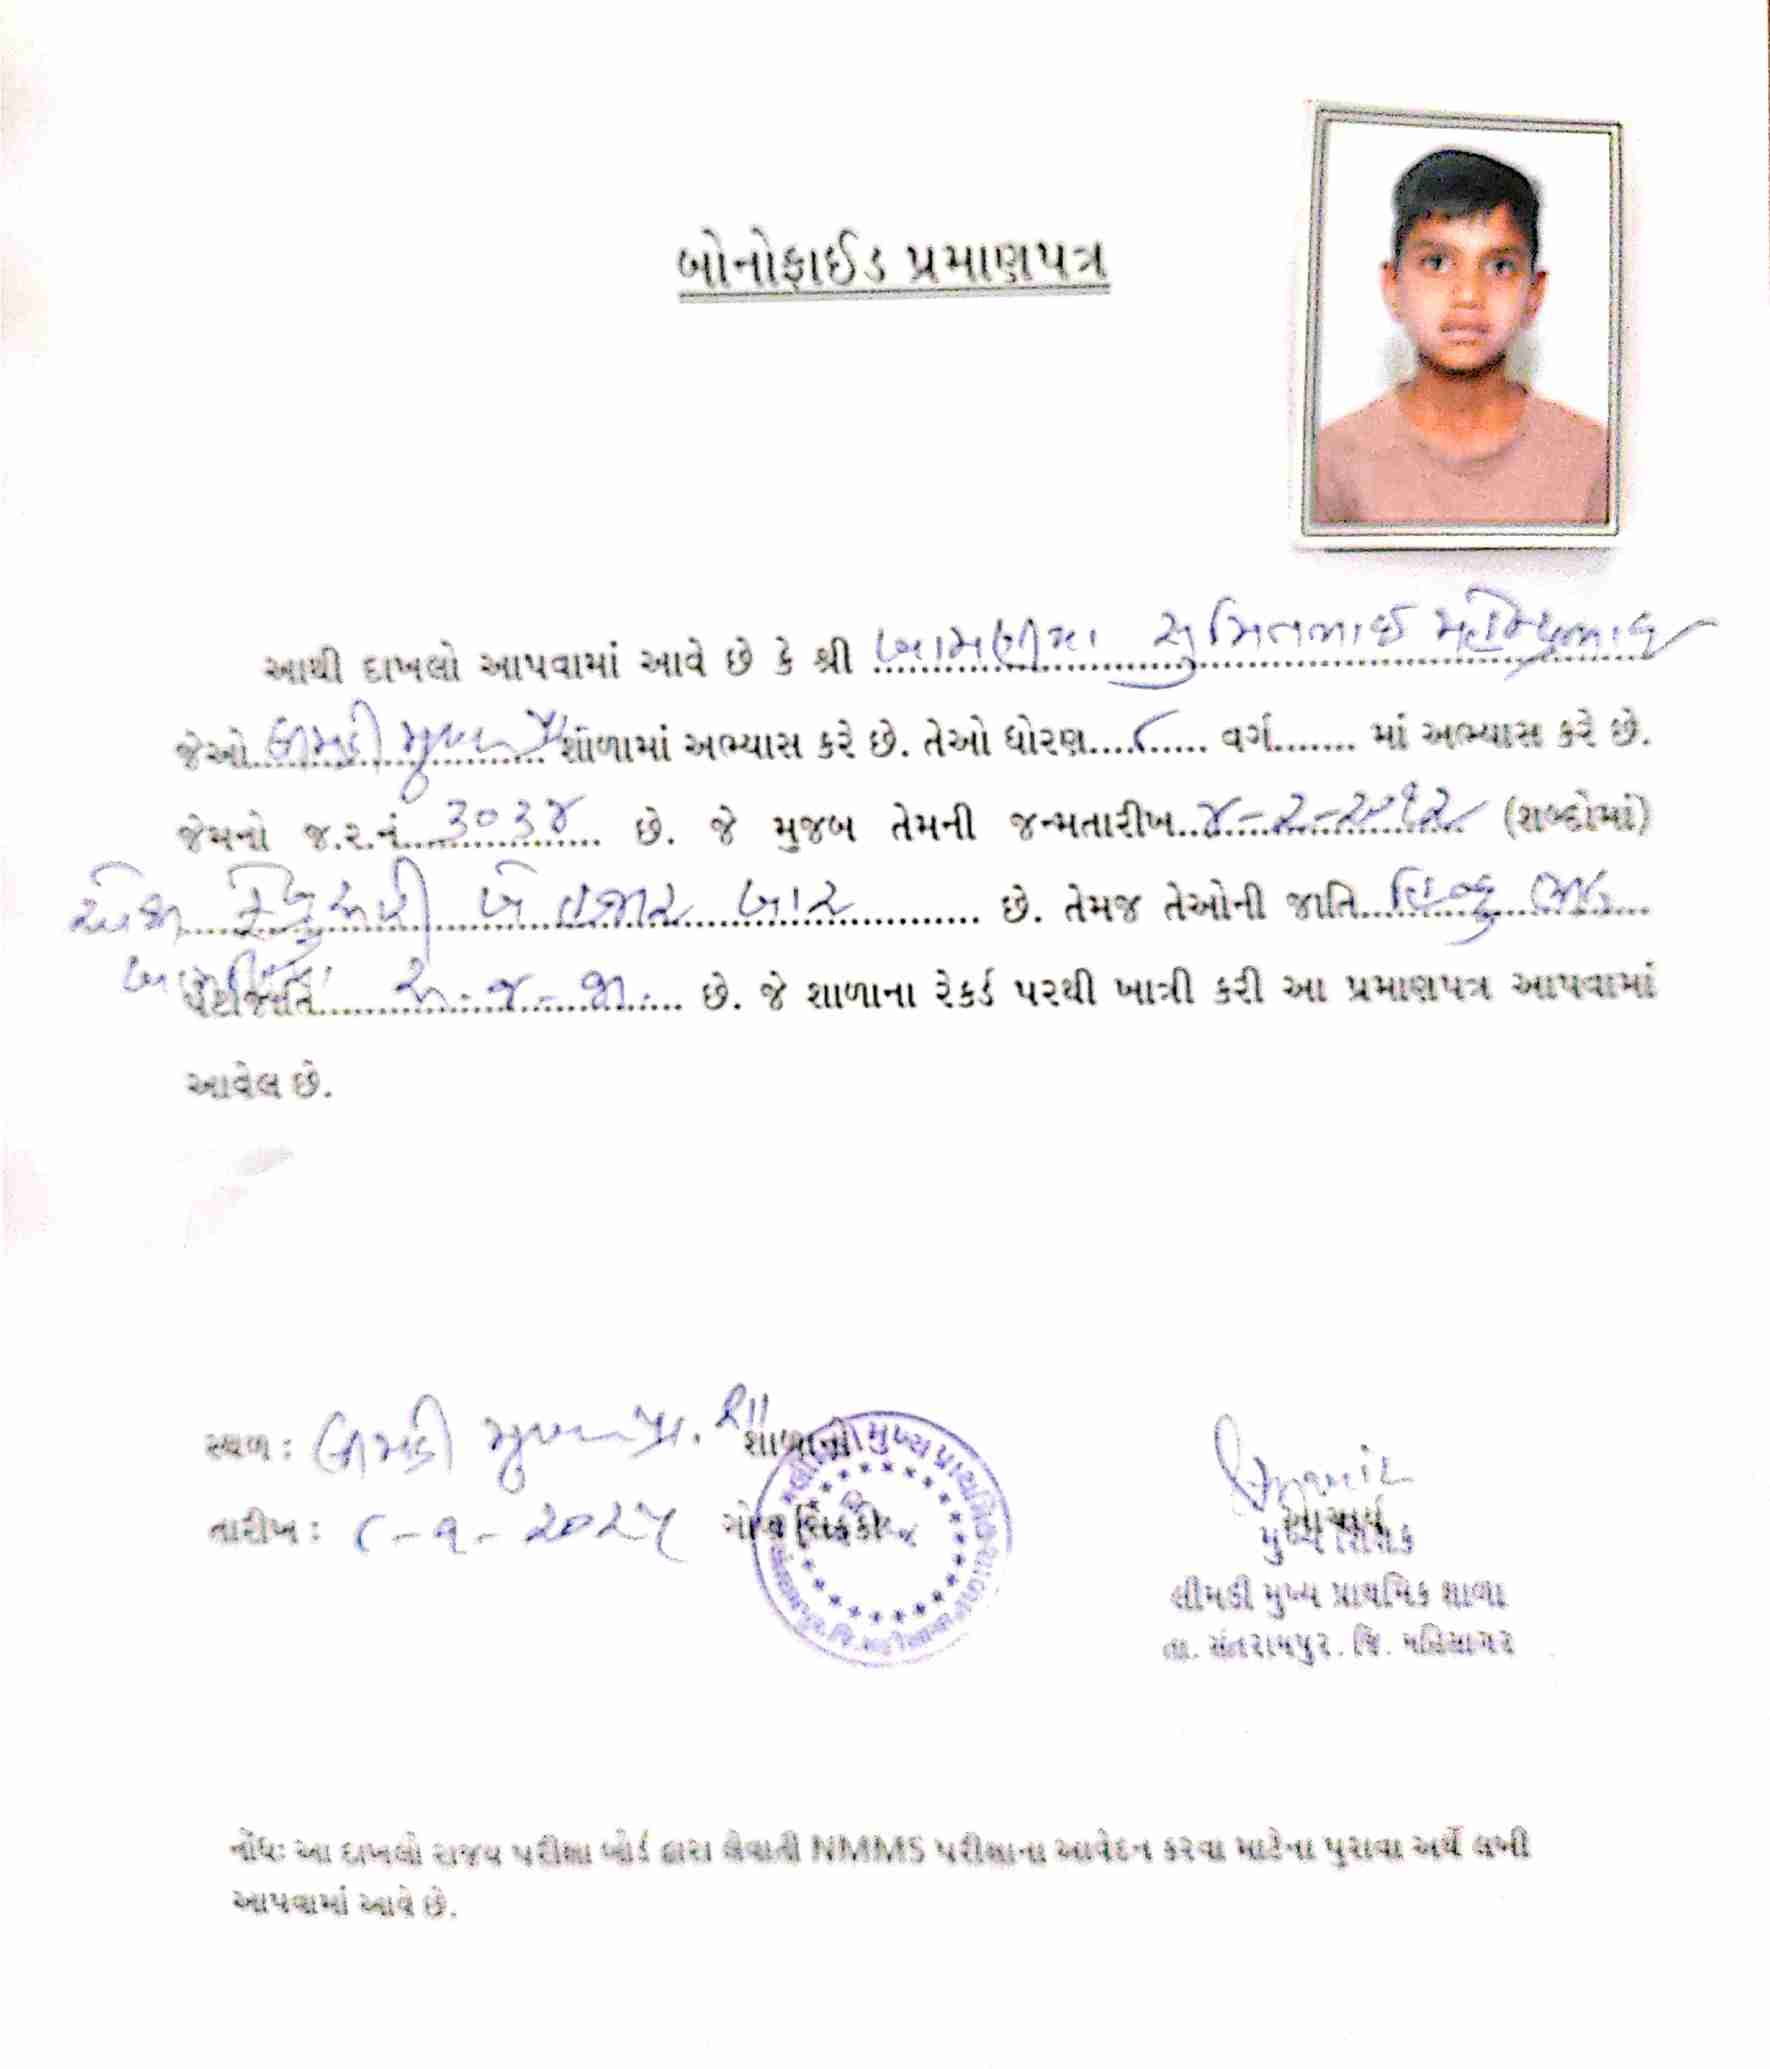 બોનોફાઈડ પ્રમાણપત્ર
આથી દાખલો આપવામાં આવે છે કે શ્રી બામણીયા સુમિતભાઈ
જેઓ લીમડી મુખ્ય પ્રા શાળામાં અભ્યાસ કરે છે. તેઓ ધોરણ....૮...... વર્ગ....... માં અભ્યાસ કરે છે.
જેમનો જ.ર.નં. ૩૦૩૪ છે. જે મુજબ તેમની જન્મતારીખ ૪-૨-૨૦૧૨ (શબ્દોમાં)
ફેબ્રુઆરી બે હજાર બાર છે. તેમજ તેઓની જાતિ હિન્દુ
પેટાજાતિ અ.જ.જા. છે. જે શાળાના રેકર્ડ પરથી ખાત્રી કરી આ પ્રમાણપત્ર આપવામાં
આવેલ છે.
સ્થળ : લીમડી મુખ્ય પ્રા. શા શાળાનો
તારીખ : ૮-૧-૨૦૨૫ ગોળ સિક્કો
આચાર્ય
મુખ્ય શિક્ષક
લીમડી મુખ્ય પ્રાથમિક શાળા
તા. સંતરામપુર. જિ. મહિસાગર
નોંધઃ આ દાખલો રાજ્ય પરીક્ષા બોર્ડ દ્વારા લેવાતી NMMS પરીક્ષાના આવેદન કરવા માટેના પુરાવા અર્થે લખી
આપવામાં આવે છે.